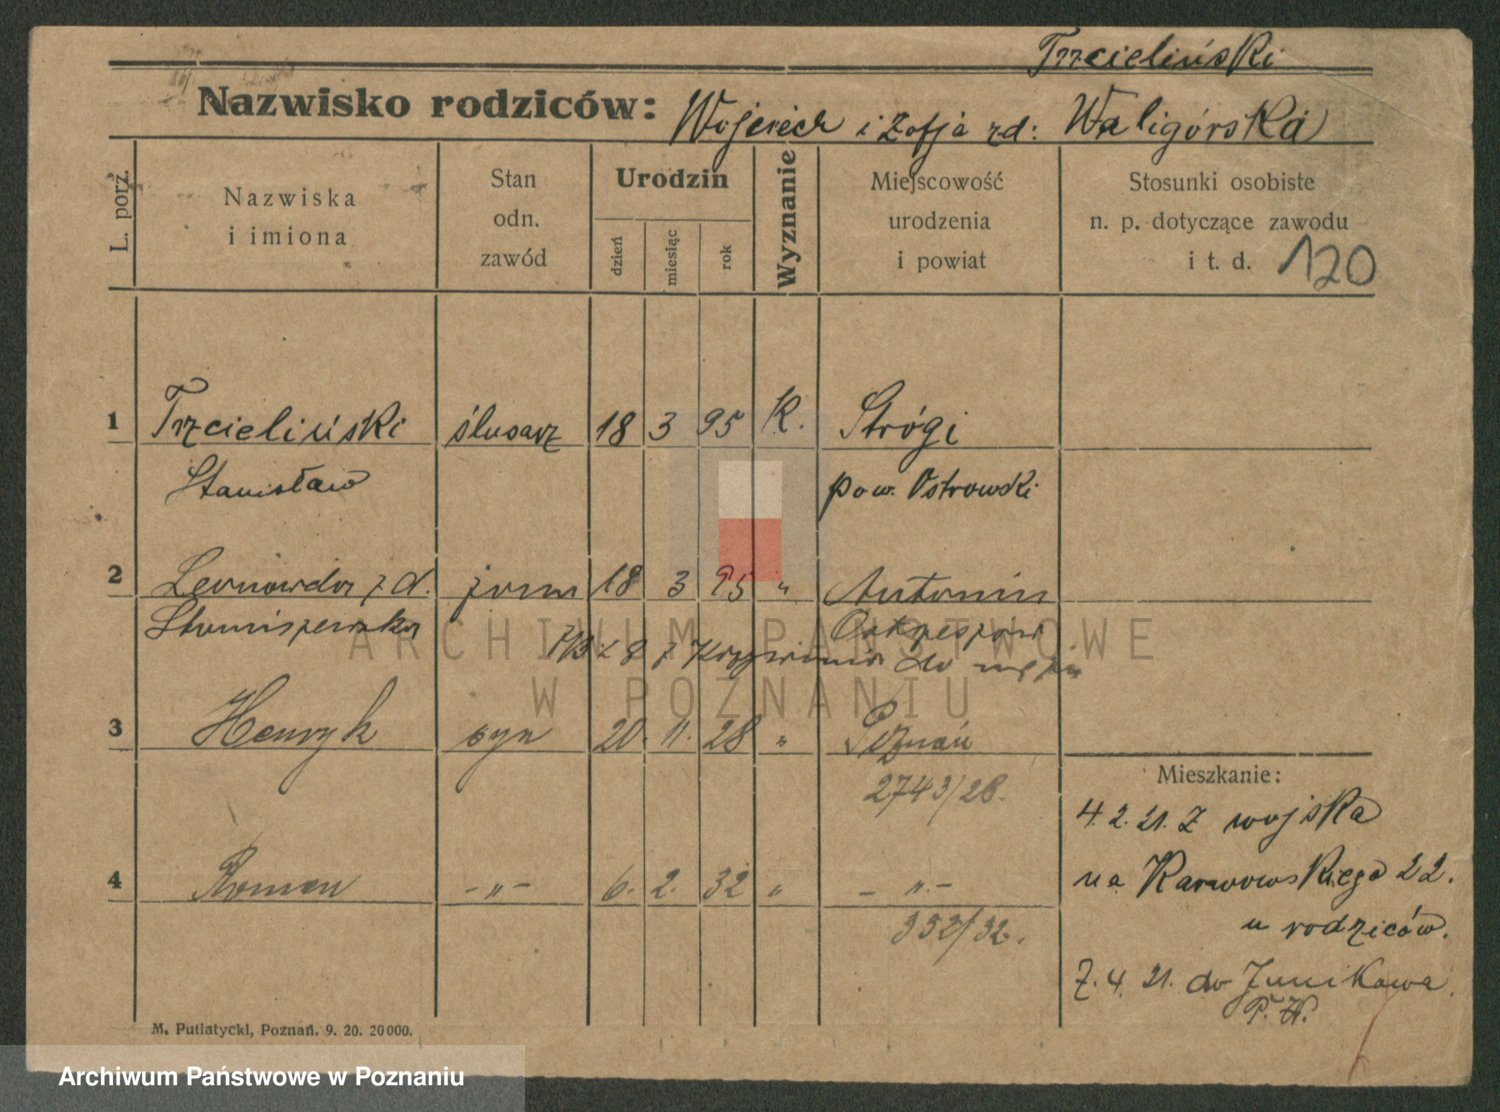 Trzcieliński
Nazwisko rodziców: Wojciech i Zofja zd: Waligórska
L. porz.
Nazwiska
i imiona
Stan
odn.
zawód
Urodzin
dzień
miesiąc
rok
Wyznanie
Miejscowość
urodzenia
i powiat
Stosunki osobiste
n. p. dotyczące zawodu
i t. d.
120
1 Trzcieliński ślusarz 18 3 95 K. Strógi
Stanisław pow. Ostrowski
2 z d. żona 18 3 95 " Antonin
do męża
3 Henryk syn 20. 11. 28 " Poznań
2743/28.
4 Roman -"- 6. 2. 32 " -"-
352/32.
Mieszkanie:
4.2.21. Z wojska
na Karwowskiego 22.
u rodziców.
7.4.21. do Junikowa
P. W.
M. Putiatycki, Poznań. 9. 20. 20000.
ARCHIWUM PAŃSTWOWE
W POZNANIU
Archiwum Państwowe w Poznaniu